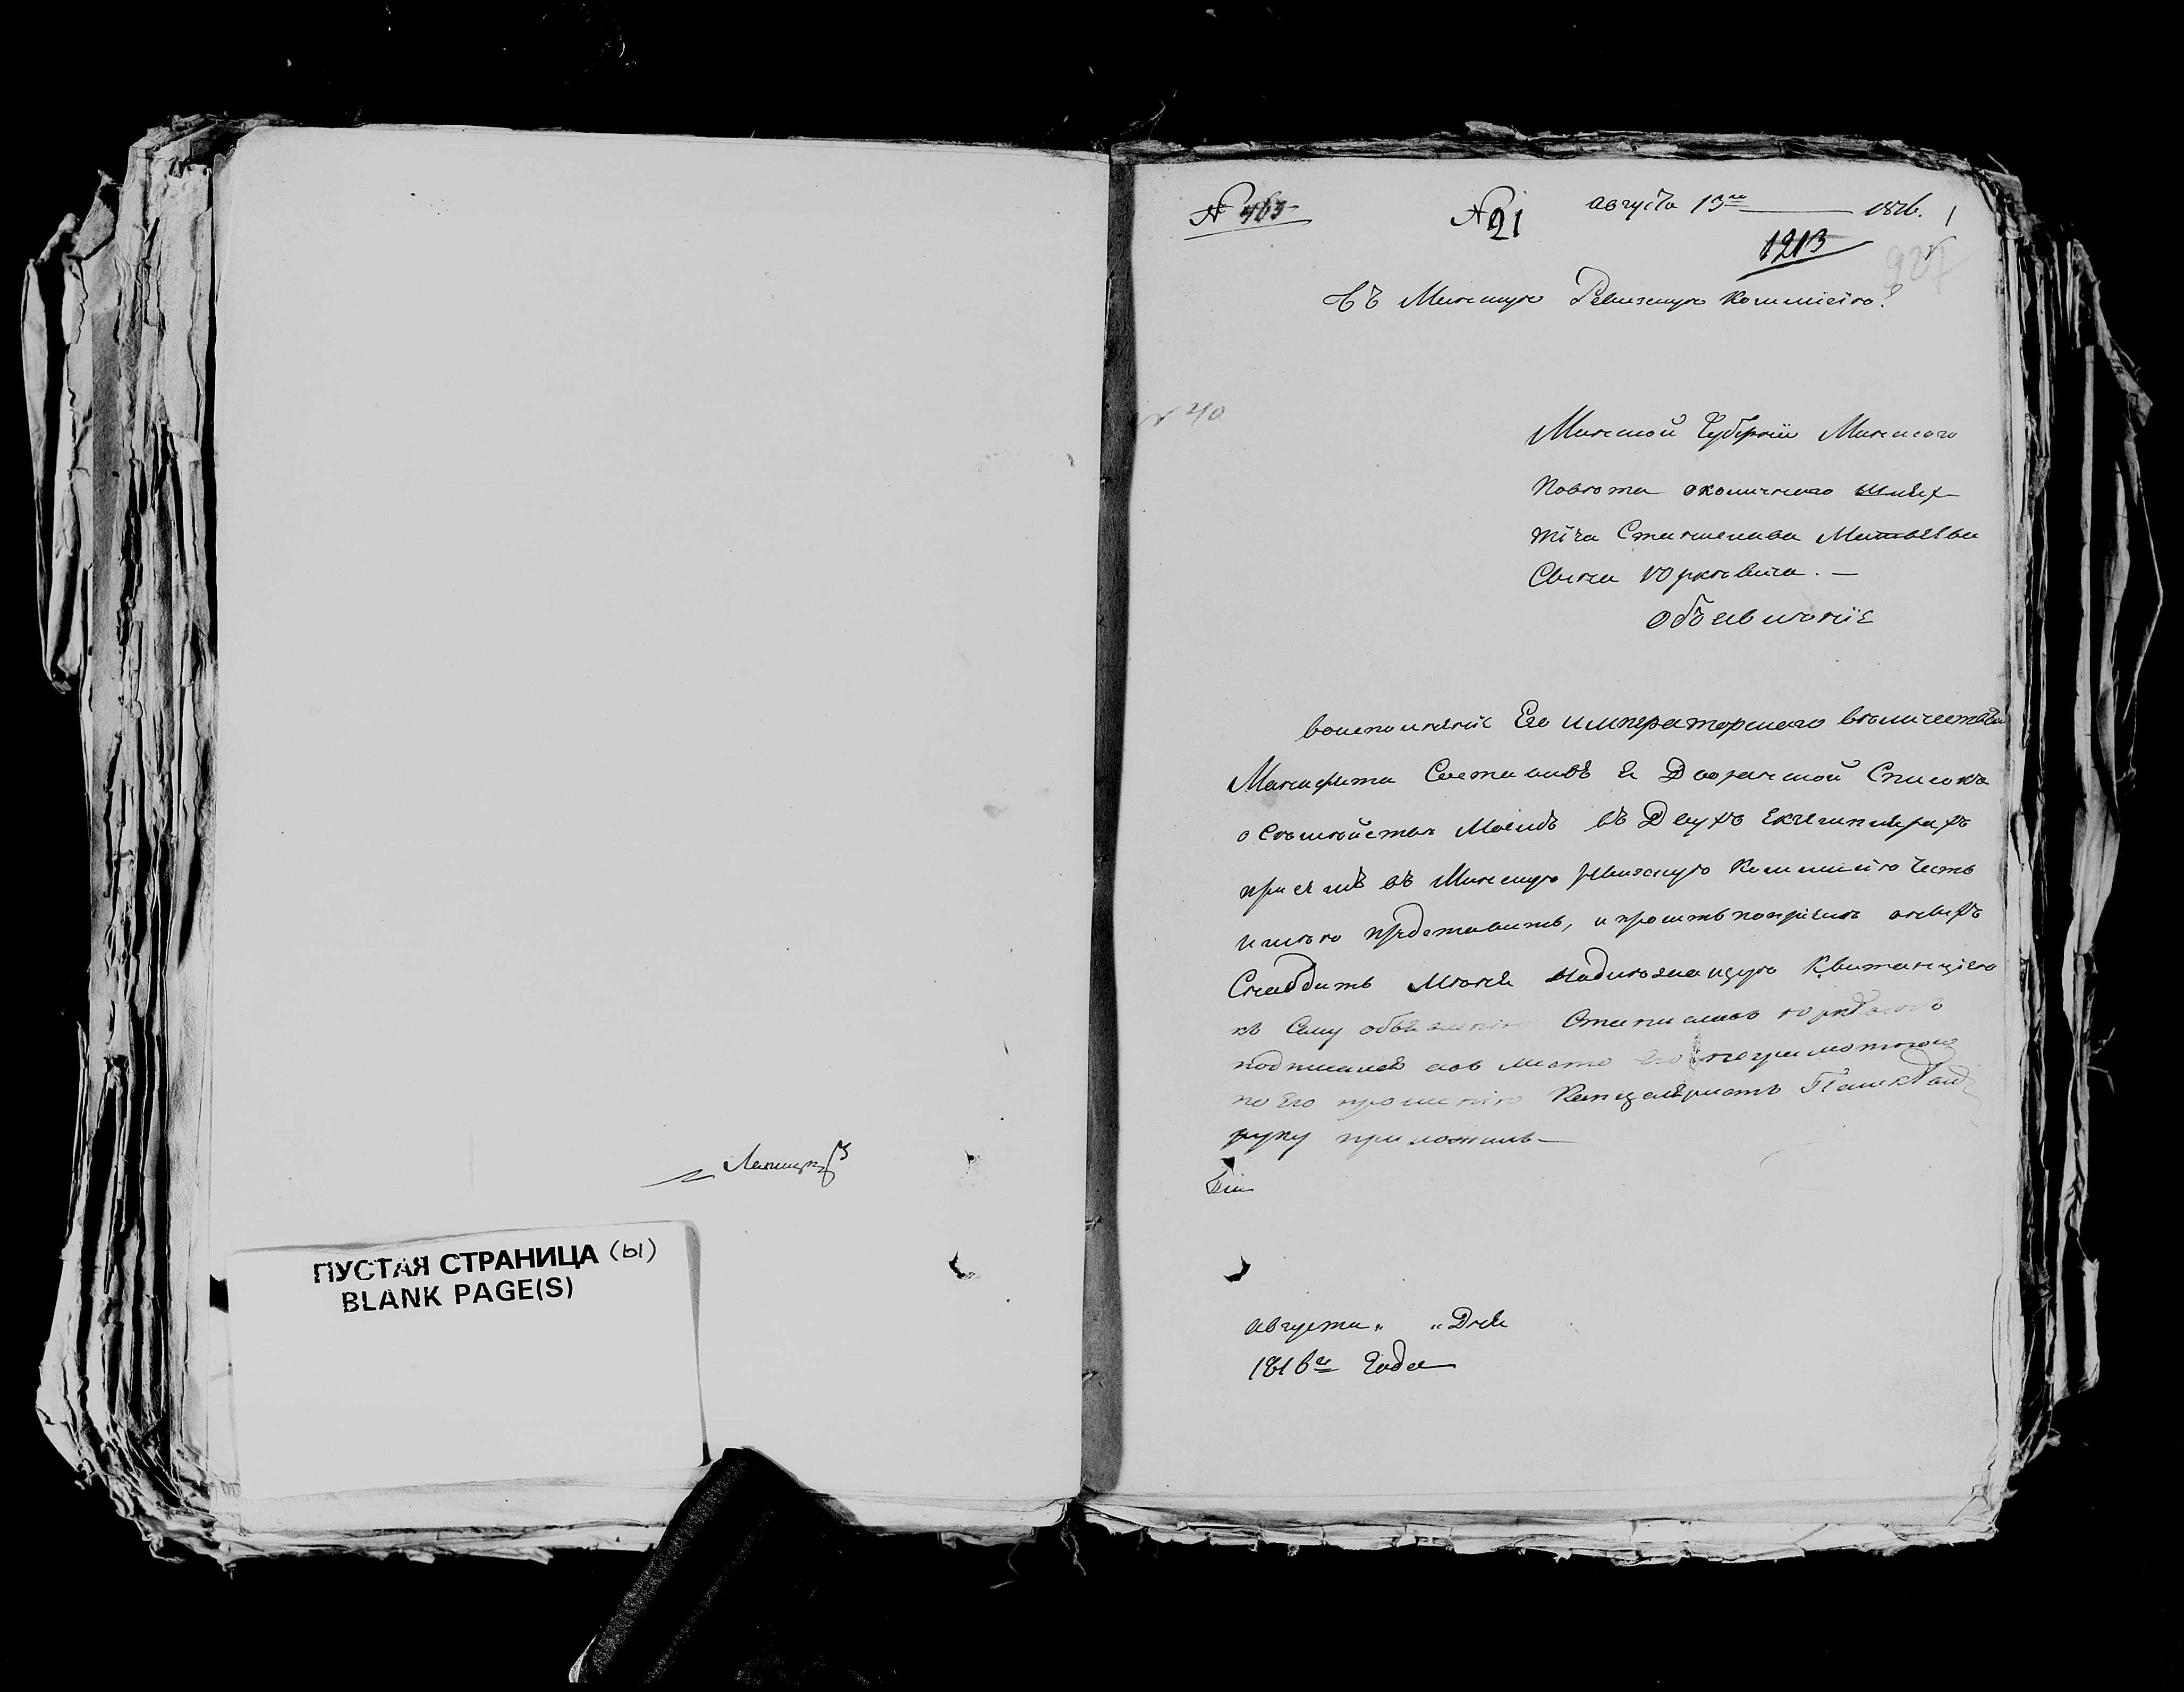 ПУСТАЯ СТРАНИЦА (ы)
BLANK PAGE(S)
№ 463
№ 21
августа 13го 1816.
1213
Въ Минскую Ревизскую Коммисію!
№ 40
Минской Губерніи Минского
Повета околичного шлях
тіча Станислава Матвеева
Сына Юркевича. —
Объявленіе
Его императорского величества
Манифеста Составивъ я Дворанской Списокъ
о Семействе Моемъ въ Двухъ Екземплярахъ
при семъ въ Минскую ревизскую Коммисію Честь
имею представить, и просить онихъ
Снабдить Меня надлежащую Квитанціею
къ Сему объявленію Станиславъ
подписался место его неграмотного
по Его прошенію Канцеляристъ
руку приложилъ —
августа „ „ Дня
1816го Года